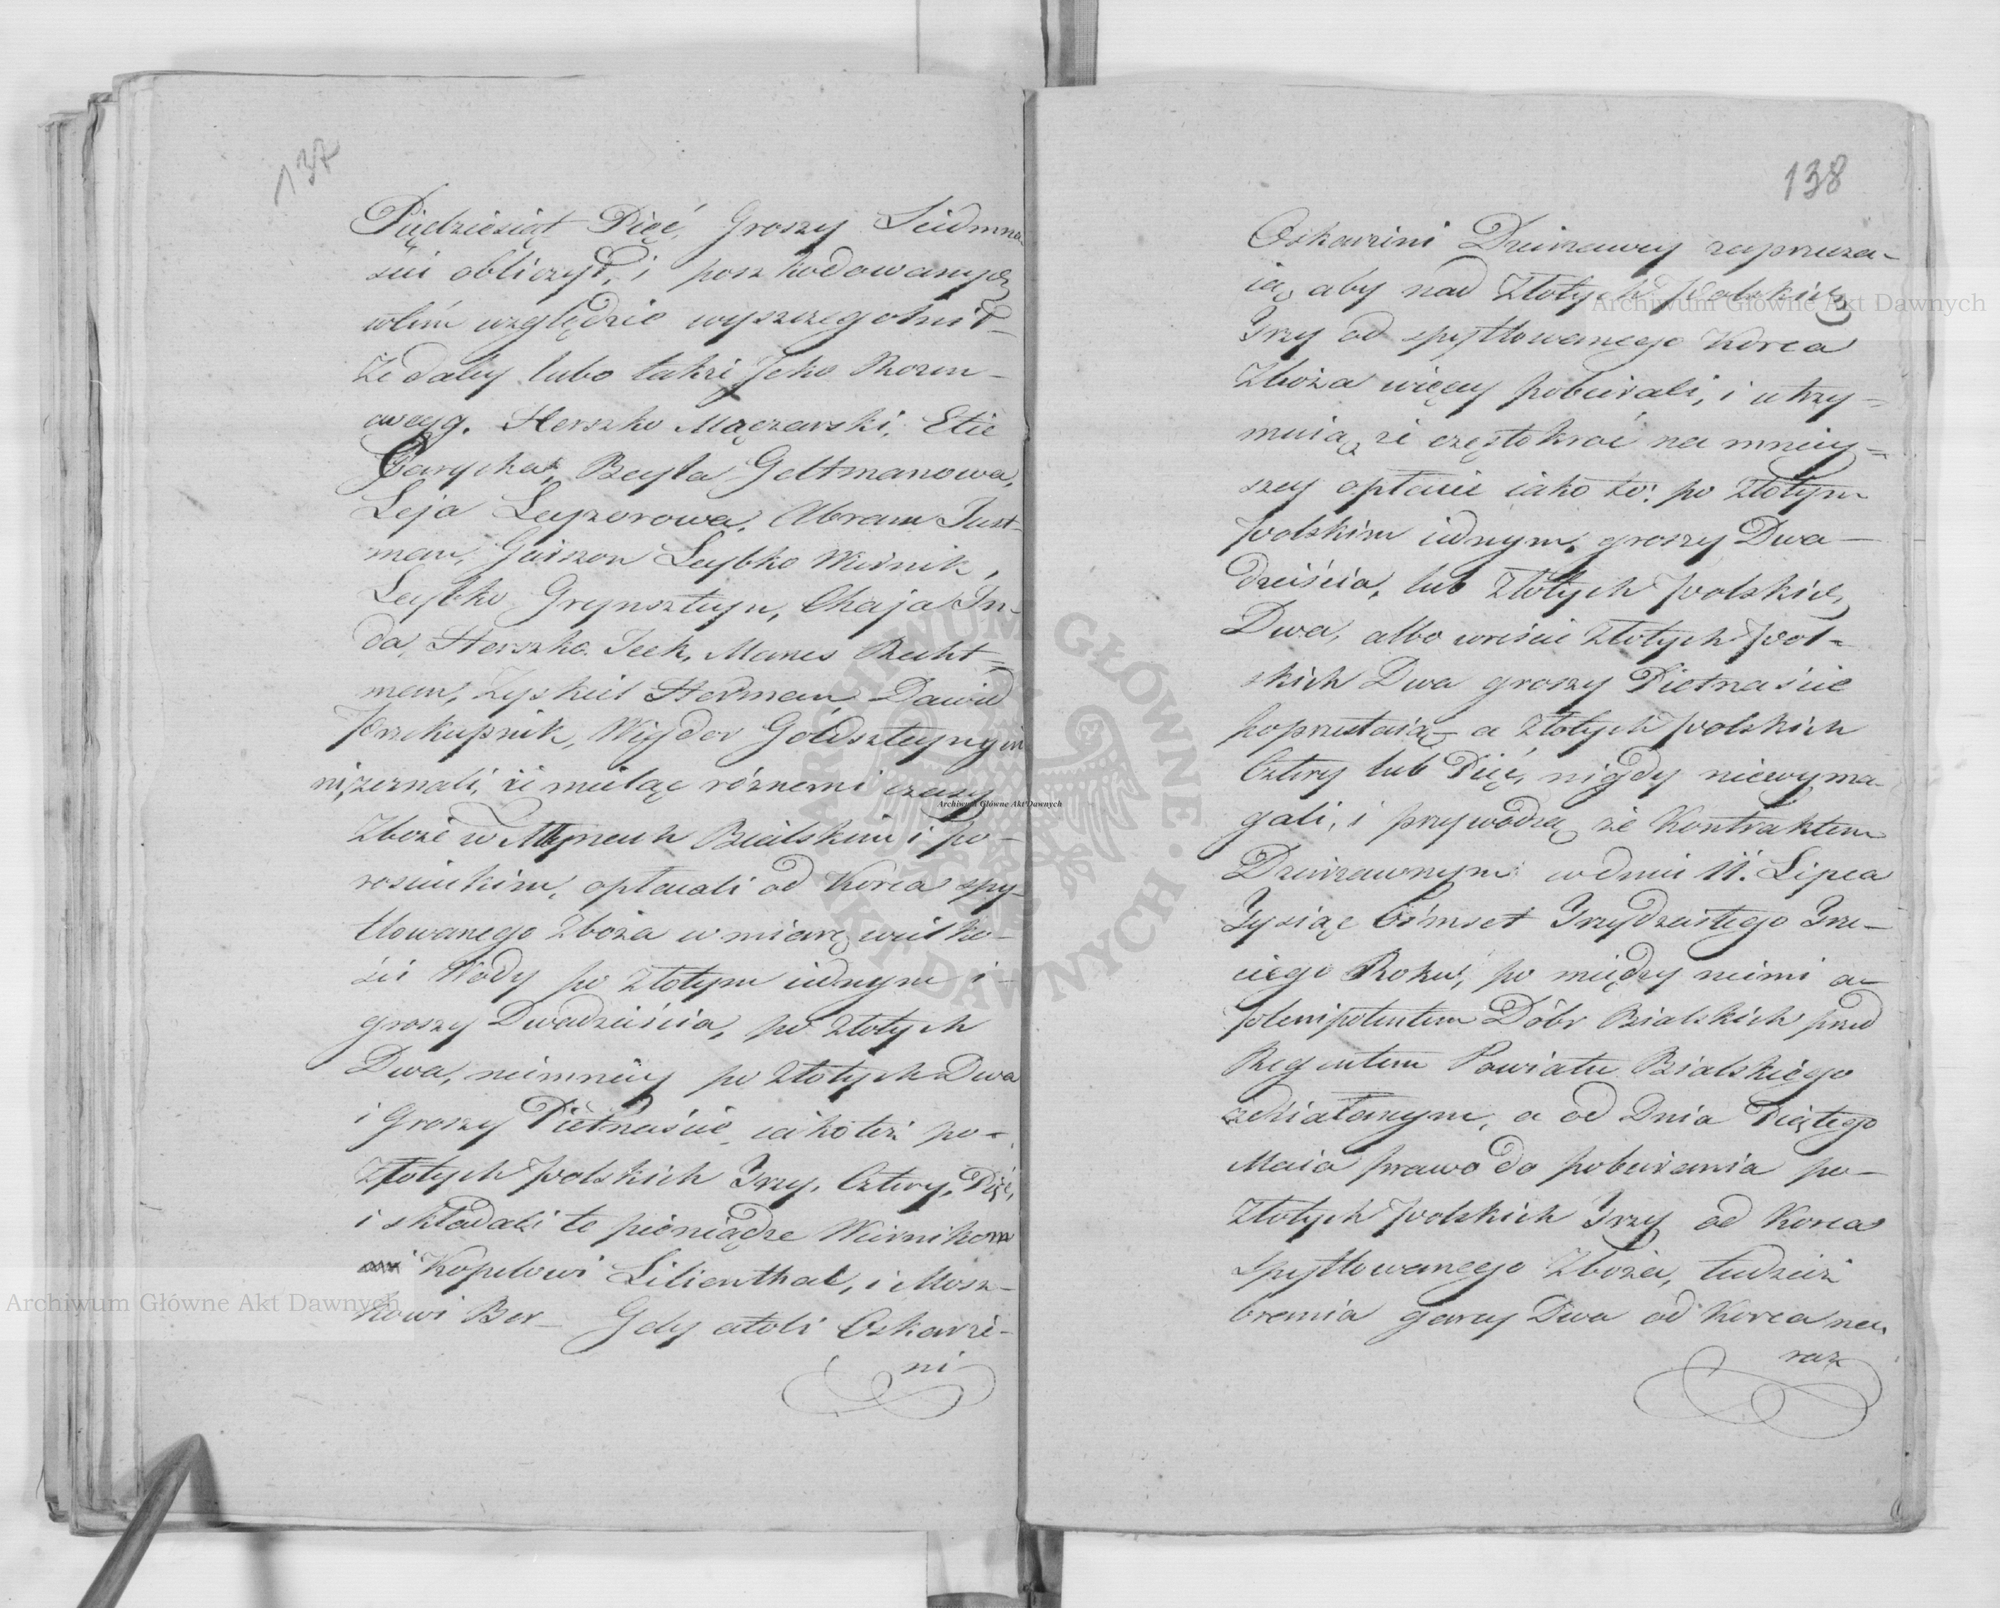 137
Pięćdziesiąt Pięć, Groszy Siedmna
ście obliczył, i poszkodowanych
wtém względzie wyszczegolnił –
że daléy lubo także Jcko Rozen
Herszko Mączarski, Etie
Parycha, Beyla Geltmanowa,
Leja Leyzorowa, Abram Just-
man, Gierszon Leybko Mirnik,
Leybko Grynszteyn, Chaja In-
da, Herszko Icek, Manes Recht-
man, Zyskiel Herman, Dawid
Przekupnik, Wigdor Goldszteyn
zeznali, iż mieląc róznemi czasy
Zboże w Młynach Bialskim i po-
rosiuckim, opłacali od Korca spy-
tlowanego Zboża w miarę wielko-
ści Wody po złotym iednym i -
groszy Dwadzieścia, po złotych
Dwa, niemniey po złotych Dwa
i Groszy Pietnaście, iakoteż po -
Złotych polskich Trzy, Cztery, Pięć,
i składali te pieniądze Miernikom
Kopelowi Lilienthal, i Mosz-
kowi Ber – Gdy atoli Oskarże-
ni
138
Oskarżeni Dzierzawcy zaprzecza-
ią, aby nad Złotych Polskich
Trzy od spytlowanego Korca
Zboża więcey pobierali, i utrzy-
muią, że częstokroć na mniey-
szey opłacie iako to: po złotym
polskim iednym, groszy Dwa-
dzieścia, lub Złotych polskich
Dwa, albo wreście złotych pol-
skich Dwa groszy Pietnaście
poprzestaią – a złotych polskich
Cztery lub Pięć, nigdy niewyma-
gali, i przywodzą że Kontraktem
Dzierzawnym w dniu 11. Lipca
Tysiąc Ośmset Trzydziestego Trze-
ciego Roku, po między niemi a
plenipotentem Dóbr Bialskich przed
Regentem Powiatu Bialskiego
zdziałanym, a od Dnia Piątego
Maia prawo do pobierania po -
Złotych polskich Trzy od Korca
spytlowanego Zboża, tudzież
brania garcy Dwa od Korca na
raz
Archiwum Główne Akt Dawnych
Archiwum Główne Akt Dawnych
Archiwum Główne Akt Dawnych
ARCHIWUM GŁÓWNE AKT DAWNYCH